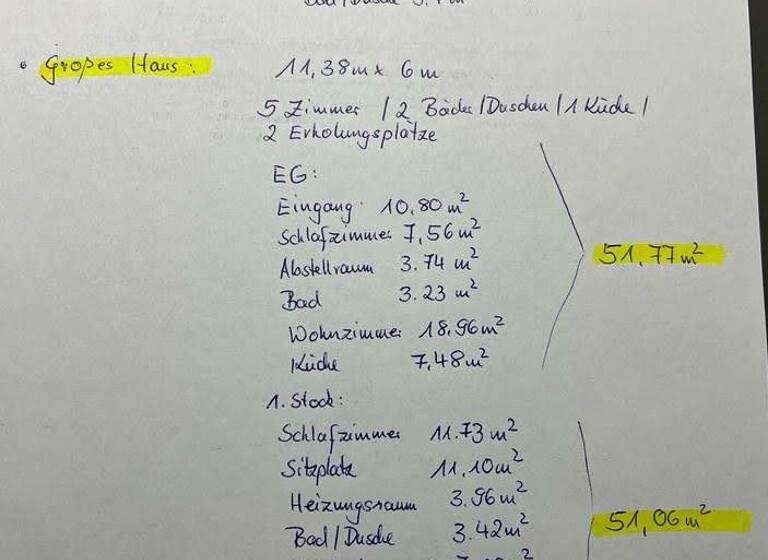 • Großes Haus: 11,38m x 6m
5 Zimmer / 2 Bäder/Duschen / 1 Küche /
2 Erholungsplätze
EG:
Eingang 10,80 m²
Schlafzimmer 7,56 m²
Abstellraum 3.74 m²
Bad 3.23 m²
51,77 m²
Wohnzimmer 18,96 m²
Küche 7,48 m²
1. Stock:
Schlafzimmer 11.73 m²
Sitzplatz 11,10 m²
Heizungsraum 3.96 m²
Bad/Dusche 3.42 m²
51,06 m²